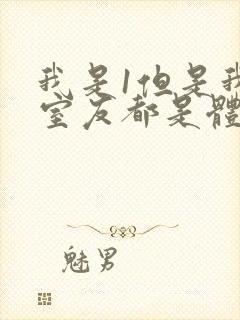 我是1但是我
室友都是體
魅男